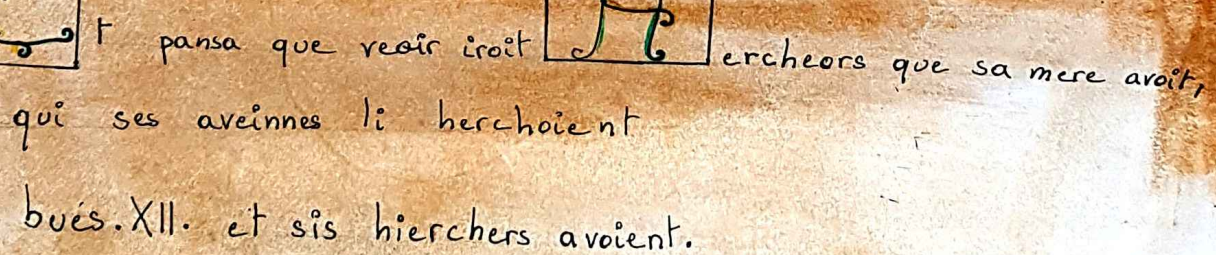 t pansa que veoir iroit hercheors que sa mere avoit,
qui ses aveinnes li herchoient
bués.XII. et sis hierchers avoient.